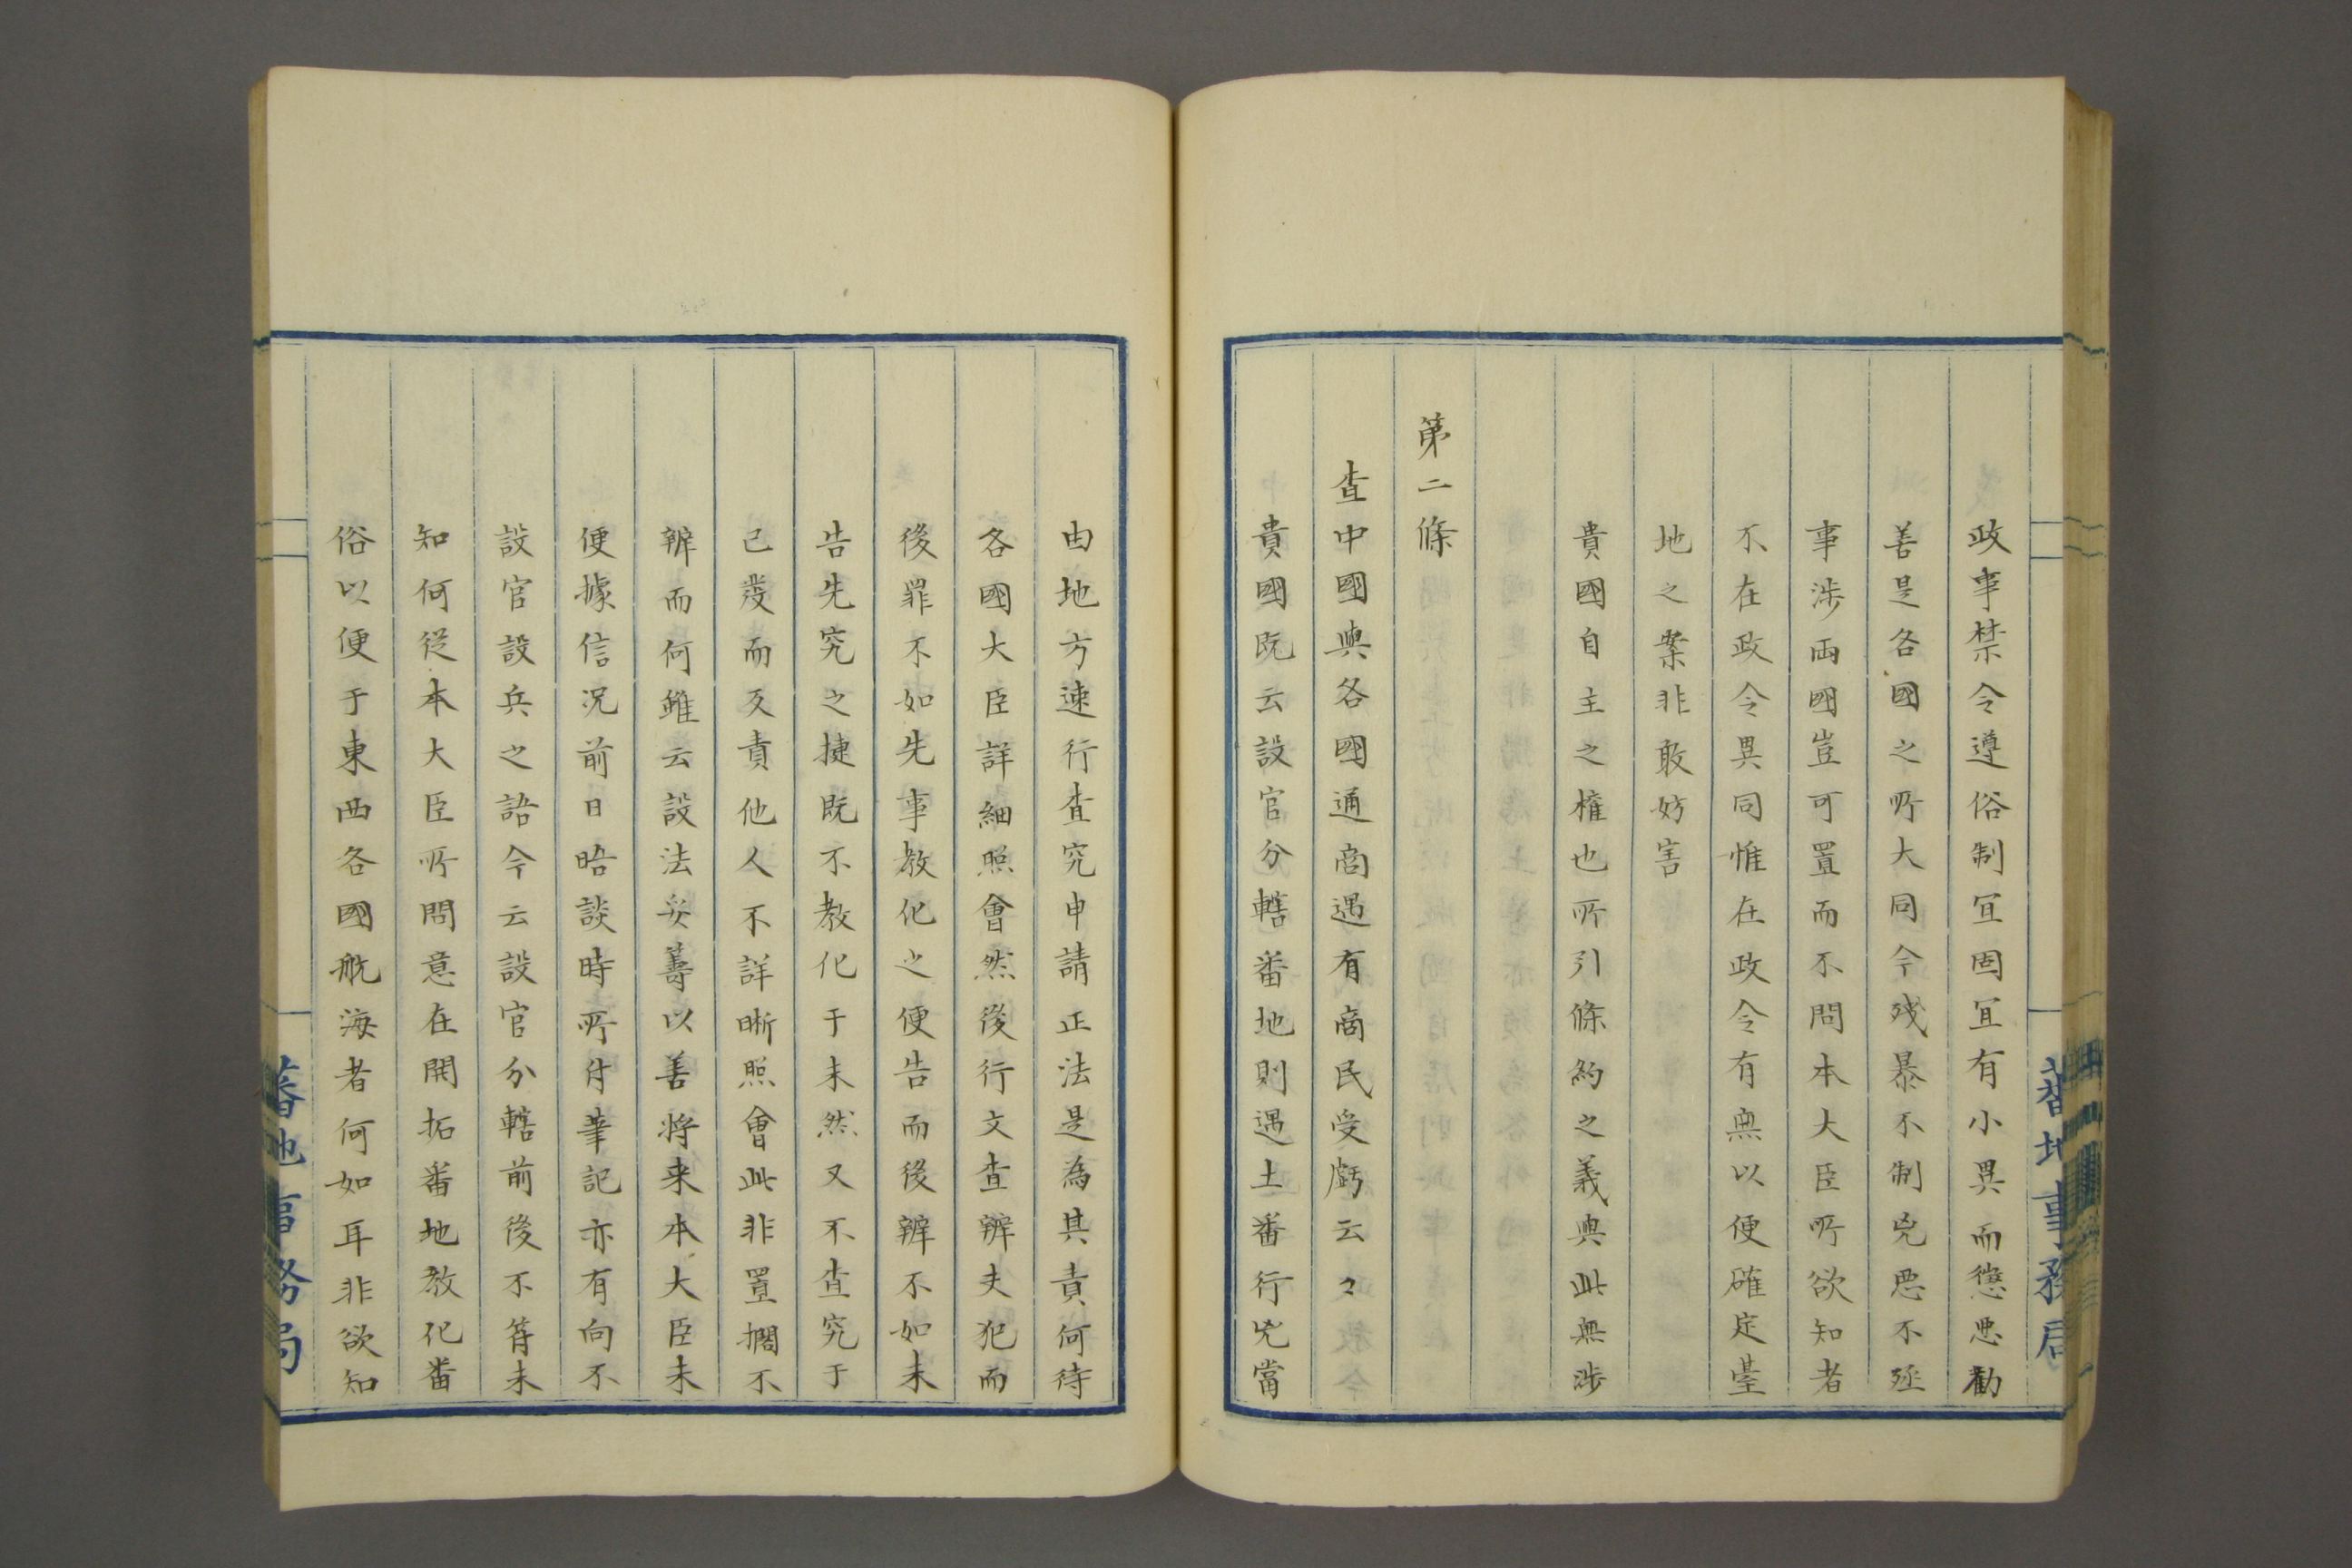 政事禁令遵俗制宜固宜有小異而懲悪勸
善是各國之所大同今殘暴不制兇悪不殛
事涉両國豈可置而不問本大臣所欲知者
不在政令異同惟在政令有無以便確定臺
地之案非敢妨害
貴國自主之權也所引條約之義與此無涉
第二條
查中國與各國通商遇有商民受虧云々
貴國既云設官分轄番地則遇土番行兇當
由地方速行查究申請正法是為其責何待
各國大臣詳細照會然後行文查辨夫犯而
後罪不如先事教化之便告而後辨不如未
告先究之捷既不教化于未然又不查究于
已發而反責他人不詳晰照會此非置擱不
辨而何雖云設法妥籌以善將来本大臣未
便據信况前日晤談時所付筆記亦有向不
設官設兵之語今云設官分轄前後不符未
知何從本大臣所問意在開拓番地教化番
俗以便于東西各國航海者何如耳非欲知
蕃地事務局
蕃地事務局